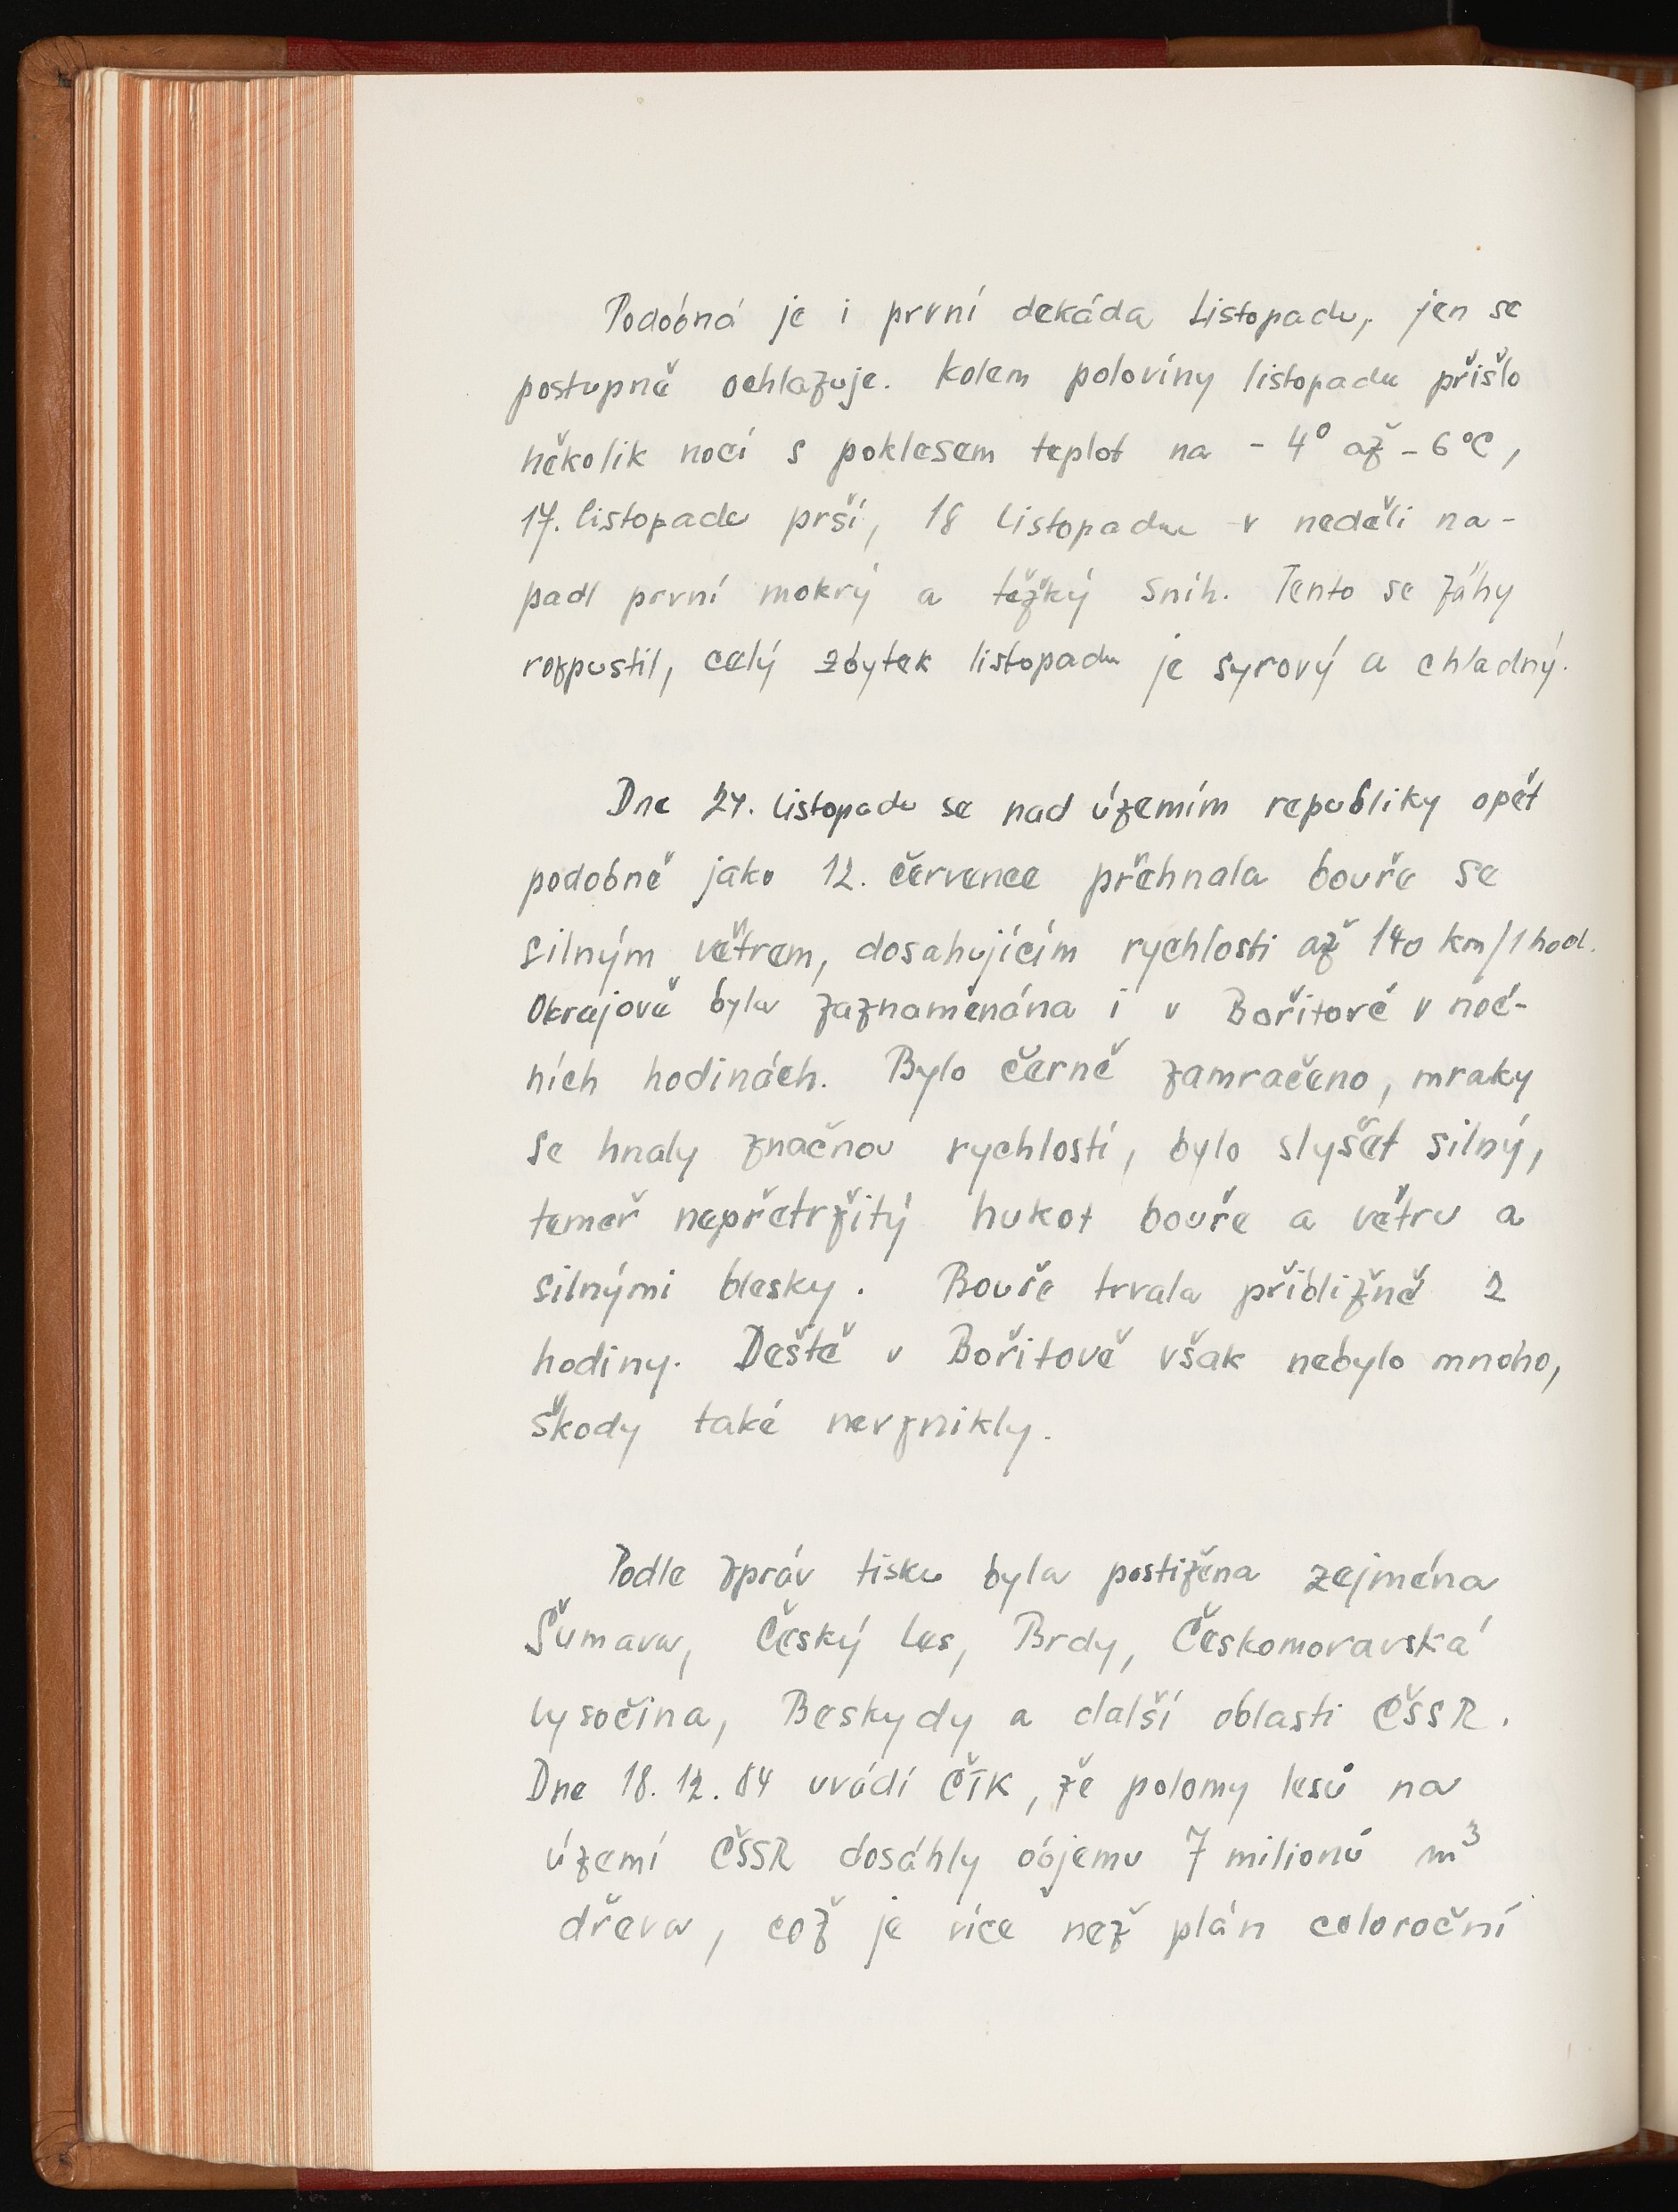 Podobná je i první dekáda listopadu, jen se
postupně ochlazuje. Kolem poloviny listopadu přišlo
několik nocí s poklesem teplot na - 4° až - 6°C,
17. listopadu prší, 18 listopadu v neděli na-
padl první mokrý a těžký sníh. Tento se záhy
rozpustil, celý zbytek listopadu je syrový a chladný.
Dne 24. listopadu se nad územím republiky opět
podobně jako 12. července přehnala bouře se
silným větrem, dosahujícím rychlosti až 140 km/1 hod.
Okrajově byla zaznamenána i v Bořitově v noč-
ních hodinách. Bylo černě zamračeno, mraky
se hnaly značnou rychlostí, bylo slyšet silný,
temeř nepřetržitý hukot bouře a větru a
silnými blesky. Bouře trvala přibližně 2
hodiny. Deště v Bořitově však nebylo mnoho,
škody také nevznikly.
Podle zpráv tisku byla postižena zejména
Šumava, Český les, Brdy, Českomoravská
vysočina, Beskydy a další oblasti ČSSR.
Dne 18. 12. 84 uvádí ČTK, že polomy lesů na
území ČSSR dosáhly objemu 7 milionů m³
dřeva, což je více než plán celoroční